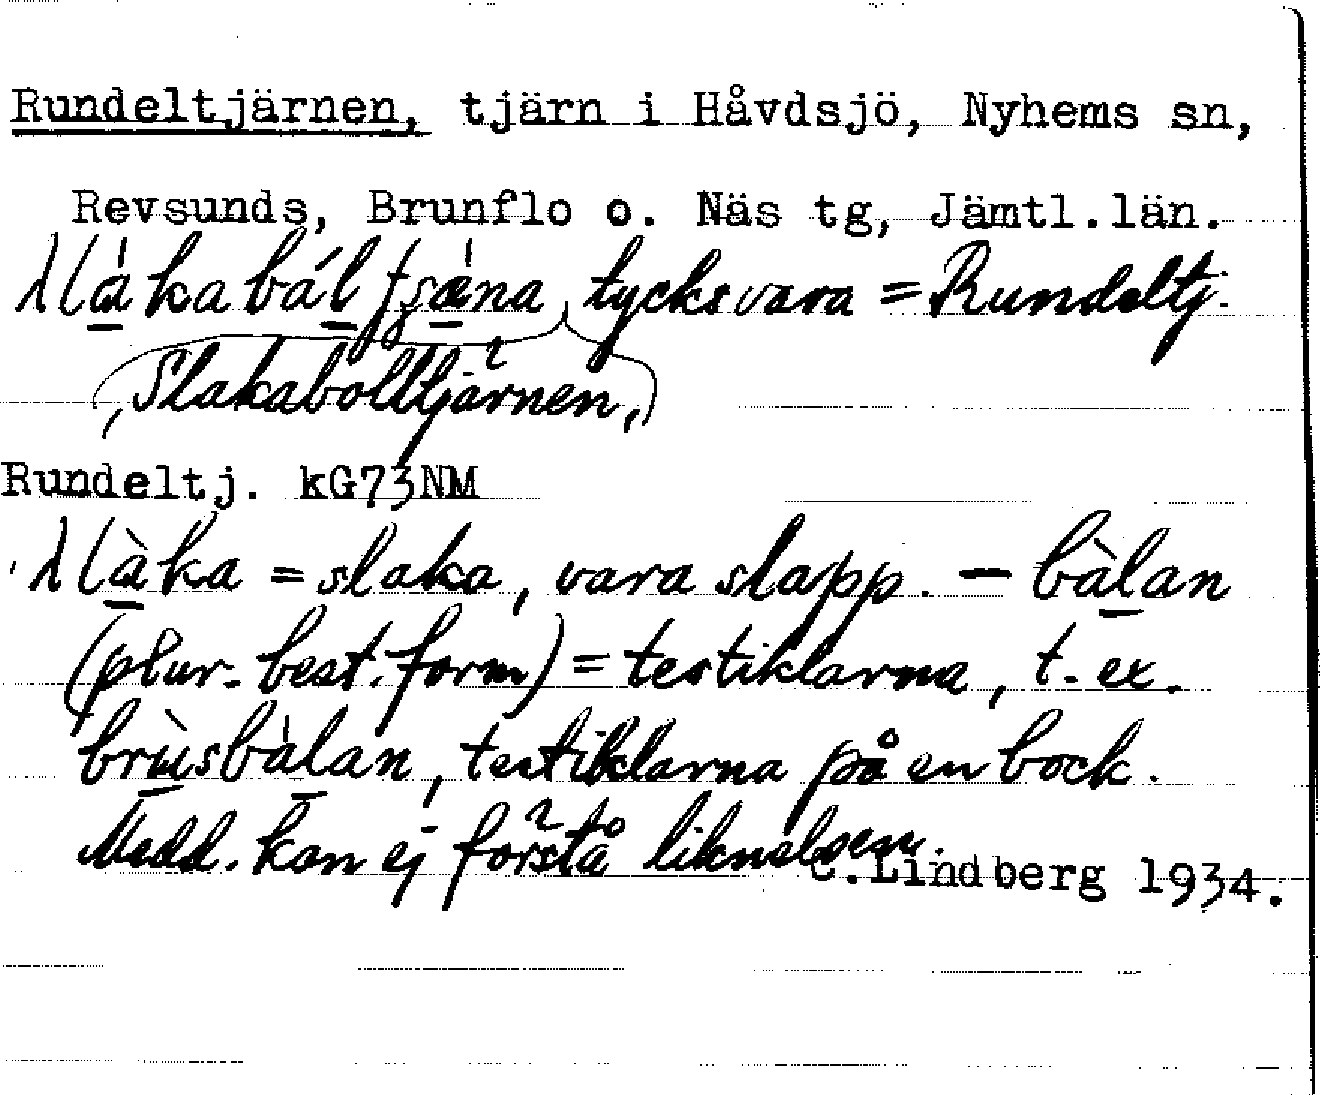 Rundeltjärnen, tjärn i Håvdsjö, Nyhems sn,
Revsunds, Brunflo o. Näs tg, Jämtl.län.
tycks vara = Rundeltj.
(„Slakabolltjärnen„)
Rundeltj. kG73NM
slàka = slaka, vara slapp. — bàlan
(plur. best. form) = testiklarna, t. ex.
brùsbàlan, testiklarna på en bock.
Medd. kan ej förstå liknelsen.
C.Lindberg 1934.